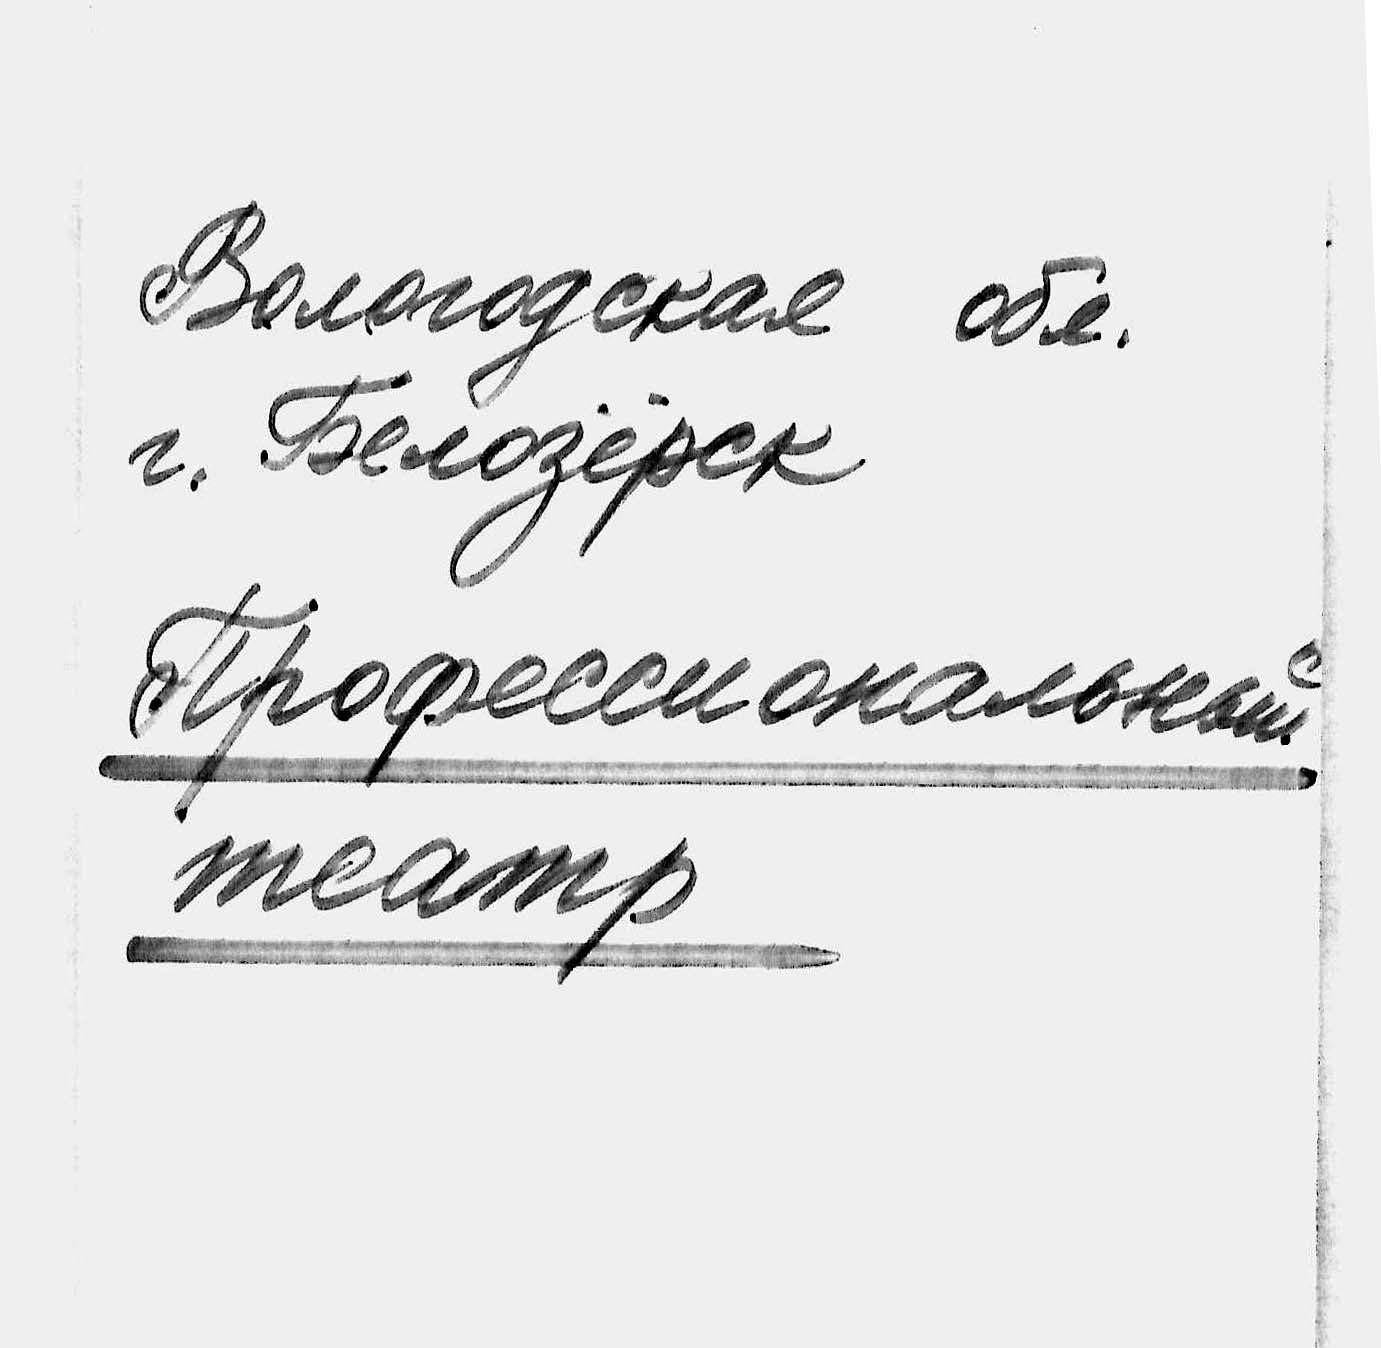 Вологодская обл.
г. Белозёрск
Профессиональный
театр